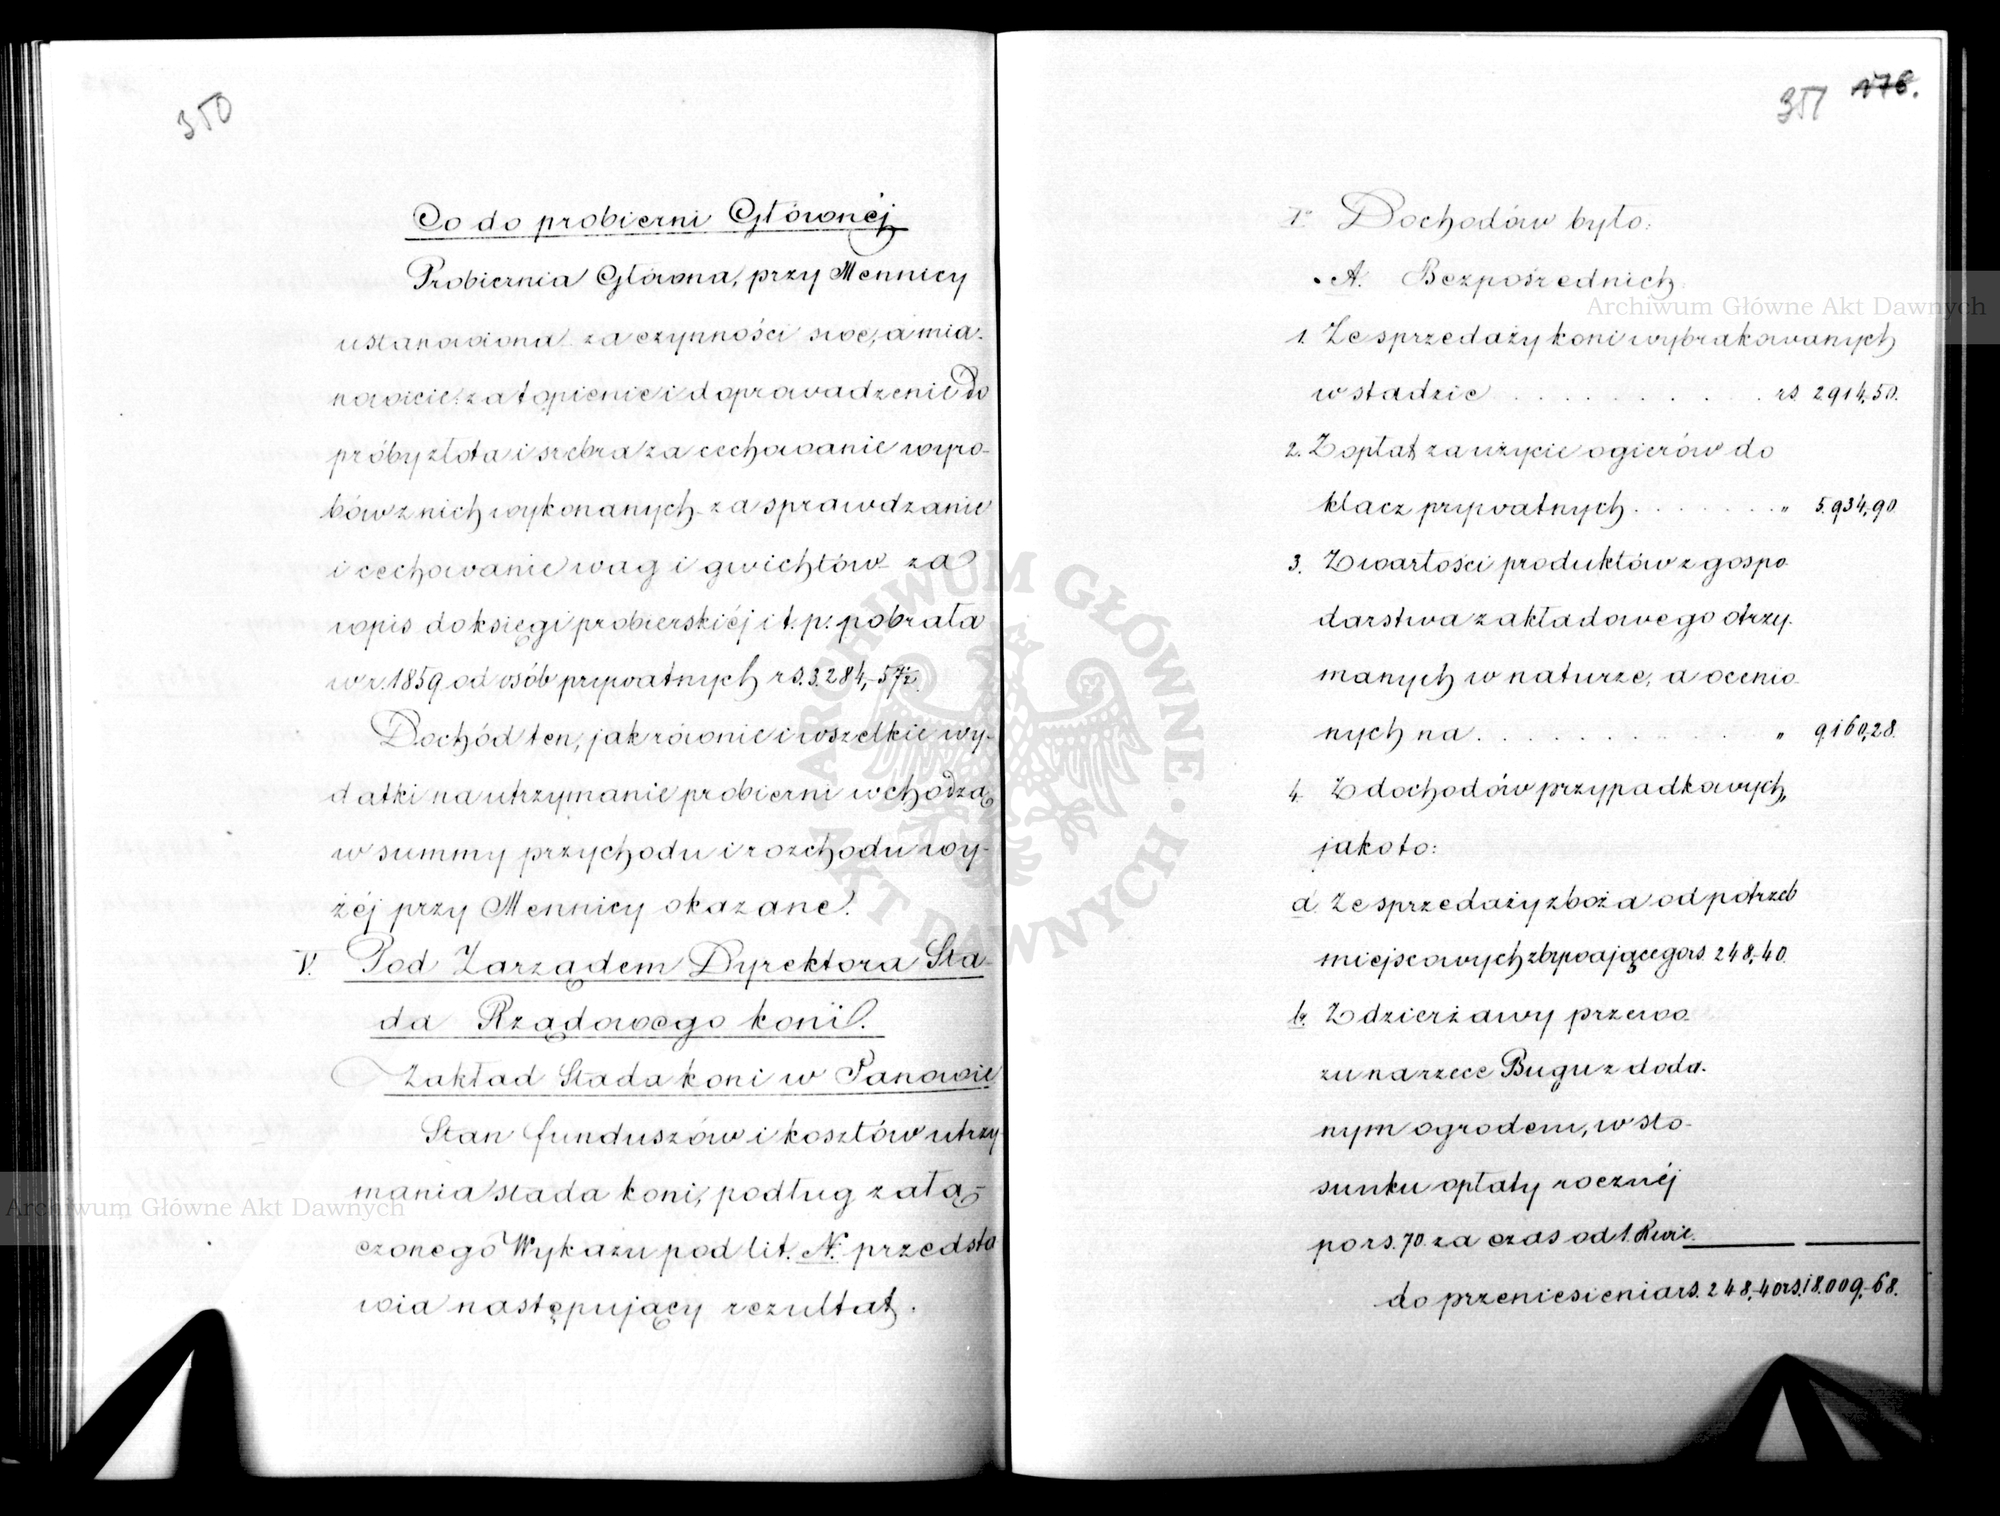 350
Co do probierni Głównéj
Probiernia Główna, przy Mennicy
ustanowiona za czynności swe, a mia-
nowicie: za topienie i doprowadzenie do
próby złota i srebra za cechowanie wyro-
bów z nich wykonanych - za sprawdzanie
i cechowanie wag i gwichtów - za
wpis do księgi probierskiéj i t. p: pobrała
w r. 1859 od osób prywatnych rs. 3.284,-57½.
Dochód ten, jak równie i wszelkie wy-
datki na utrzymanie probierni wchodzą
w summy przychodu i rozchodu wy-
żéj przy Mennicy okazane.
V. Pod Zarządem Dyrektora Sta-
da Rządowego koni.
Zakład Stada koni w Janowie
Stan funduszów i kosztów utrzy-
mania stada koni, podług załą-
czonego Wykazu pod lit. N. przedsta
wia następujący rezultat.
351 176.
1o Dochodów było:
A. Bezpośrednich
1. Ze sprzedaży koni wybrakowanych
w stadzie . . . . . . . . . . rs. 2.914,50.
2. Z opłat za użycie ogierów do
klacz prywatnych . . . . . . . „ 5.934,90.
3. Z wartości produktów z gospo-
darstwa zakładowego otrzy-
manych w naturze, a ocenio-
nych na . . . . . . . . . . „ 9.160,28.
4. Z dochodów przypadkowych,
jakoto:
a. Ze sprzedaży zboża od potrzeb
miejscowych zbywającego rs. 248,-40.
b. Z dzierżawy przewo-
zu na rzece Bugu z doda-
nym ogrodem, w sto-
sunku opłaty rocznéj
po rs. 70. za czas od 1. Kwie.
do przeniesienia rs. 248,-40 rs. 18.009,-68.
Archiwum Główne Akt Dawnych
Archiwum Główne Akt Dawnych
ARCHIWUM GŁÓWNE · AKT DAWNYCH ·